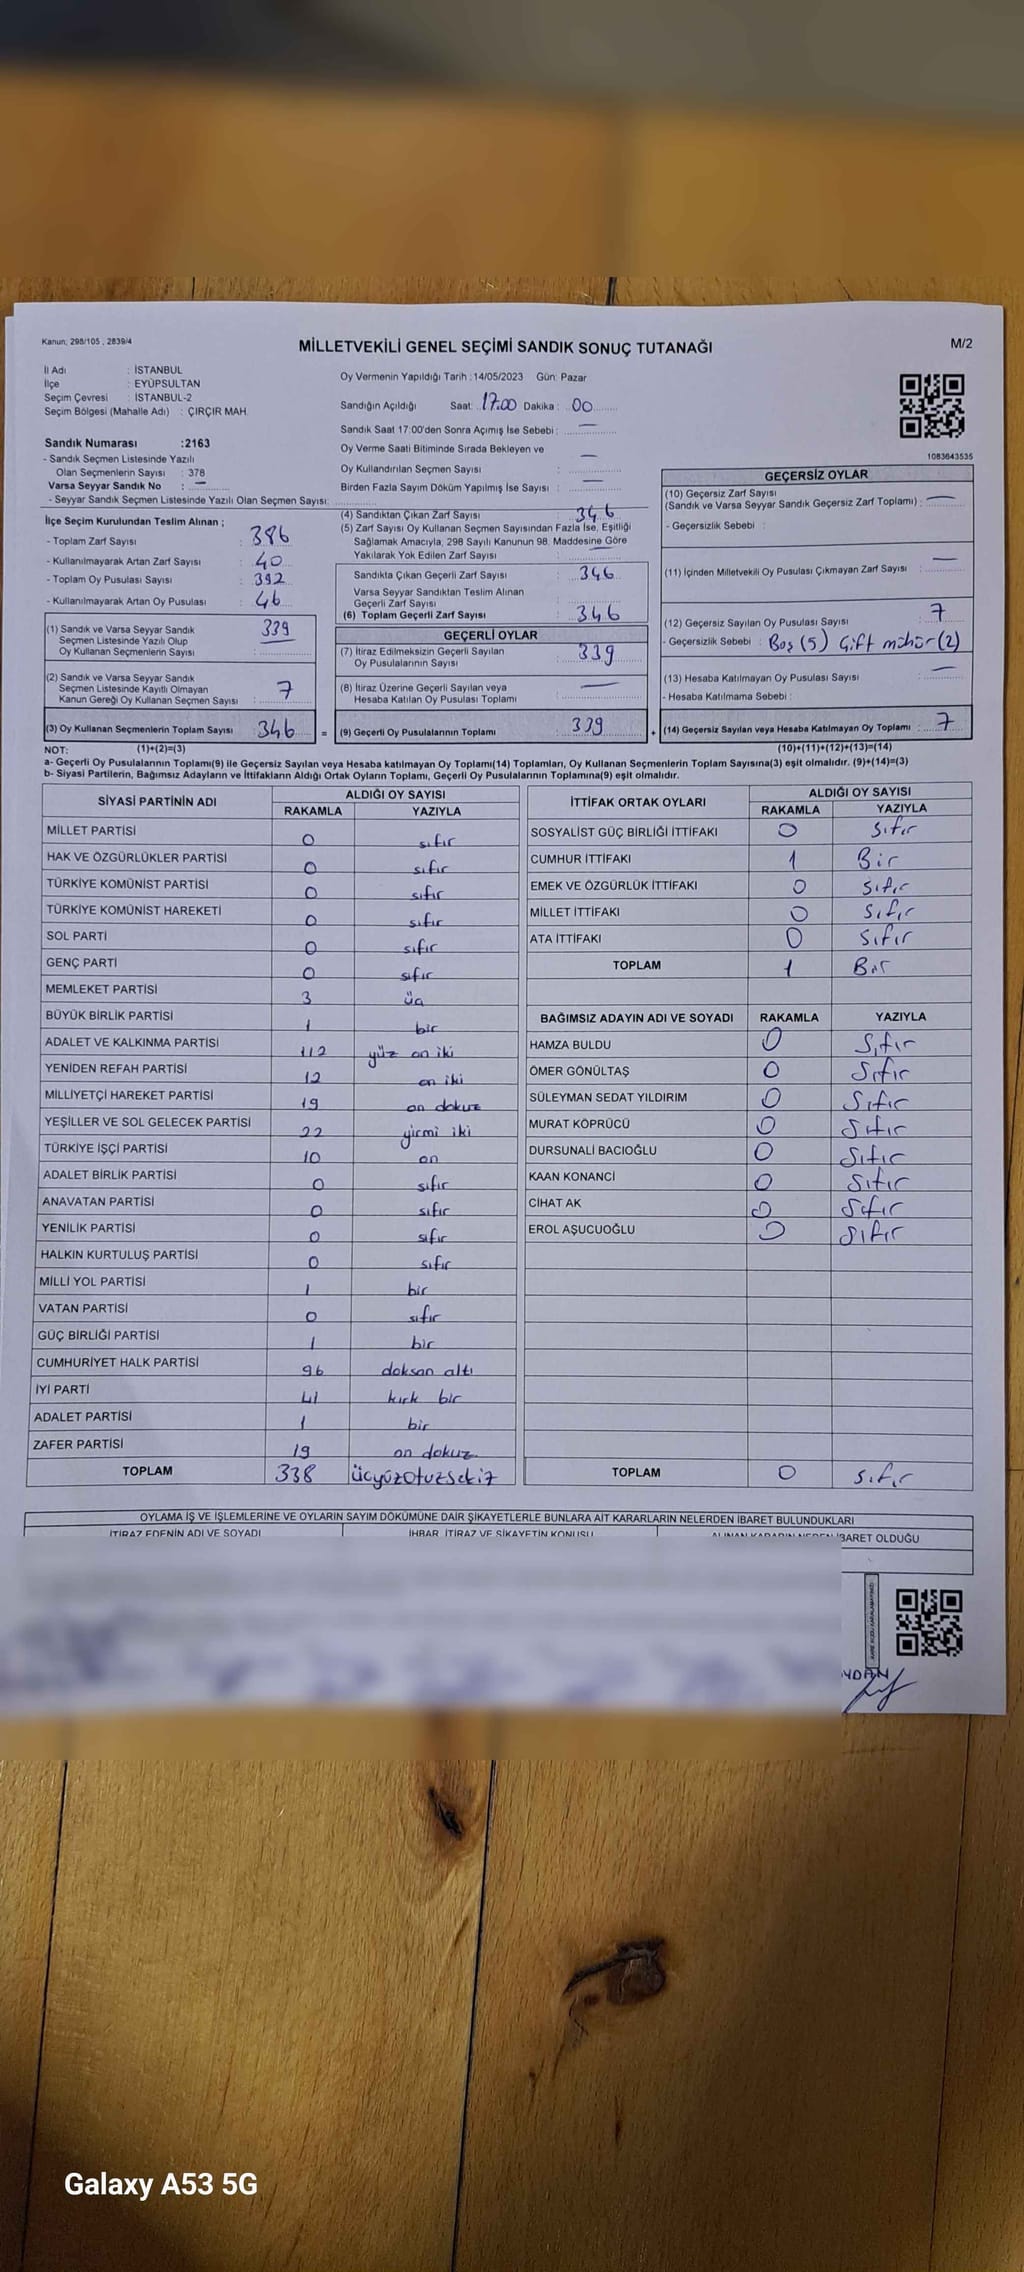 Kanun; 298/105 , 2839/4
MİLLETVEKİLİ GENEL SEÇİMİ SANDIK SONUÇ TUTANAĞI
M/2
İl Adı : İSTANBUL
İlçe : EYÜPSULTAN
Seçim Çevresi : İSTANBUL-2
Seçim Bölgesi (Mahalle Adı) : ÇIRÇIR MAH.
Sandık Numarası :2163
- Sandık Seçmen Listesinde Yazılı
Olan Seçmenlerin Sayısı : 378
Varsa Seyyar Sandık No : —
- Seyyar Sandık Seçmen Listesinde Yazılı Olan Seçmen Sayısı:
Oy Vermenin Yapıldığı Tarih :14/05/2023 Gün: Pazar
Sandığın Açıldığı Saat: 17:00 Dakika : 00
Sandık Saat 17:00'den Sonra Açımış İse Sebebi : —
Oy Verme Saati Bitiminde Sırada Bekleyen ve
Oy Kullandırılan Seçmen Sayısı : —
Birden Fazla Sayım Döküm Yapılmış İse Sayısı : —
1083643535
İlçe Seçim Kurulundan Teslim Alınan ;
- Toplam Zarf Sayısı : 386
- Kullanılmayarak Artan Zarf Sayısı : 40
- Toplam Oy Pusulası Sayısı : 392
- Kullanılmayarak Artan Oy Pusulası : 46
(1) Sandık ve Varsa Seyyar Sandık 339
Seçmen Listesinde Yazılı Olup
Oy Kullanan Seçmenlerin Sayısı
(2) Sandık ve Varsa Seyyar Sandık
Seçmen Listesinde Kayıtlı Olmayan 7
Kanun Gereği Oy Kullanan Seçmen Sayısı
(3) Oy Kullanan Seçmenlerin Toplam Sayısı 346
NOT: (1)+(2)=(3)
(4) Sandıktan Çıkan Zarf Sayısı : 346
(5) Zarf Sayısı Oy Kullanan Seçmen Sayısından Fazla İse, Eşitliği
Sağlamak Amacıyla, 298 Sayılı Kanunun 98. Maddesine Göre
Yakılarak Yok Edilen Zarf Sayısı : —
Sandıkta Çıkan Geçerli Zarf Sayısı : 346
Varsa Seyyar Sandıktan Teslim Alınan
Geçerli Zarf Sayısı
(6) Toplam Geçerli Zarf Sayısı : 346
GEÇERLİ OYLAR
(7) İtiraz Edilmeksizin Geçerli Sayılan
Oy Pusulalarının Sayısı : 339
(8) İtiraz Üzerine Geçerli Sayılan veya
Hesaba Katılan Oy Pusulası Toplamı —
= (9) Geçerli Oy Pusulalarının Toplamı 339
GEÇERSİZ OYLAR
(10) Geçersiz Zarf Sayısı
(Sandık ve Varsa Seyyar Sandık Geçersiz Zarf Toplamı) : —
- Geçersizlik Sebebi :
(11) İçinden Milletvekili Oy Pusulası Çıkmayan Zarf Sayısı : —
(12) Geçersiz Sayılan Oy Pusulası Sayısı : 7
- Geçersizlik Sebebi : Boş (5) Çift mühür (2)
(13) Hesaba Katılmayan Oy Pusulası Sayısı : —
- Hesaba Katılmama Sebebi :
+ (14) Geçersiz Sayılan veya Hesaba Katılmayan Oy Toplamı : 7
(10)+(11)+(12)+(13)=(14)
a- Geçerli Oy Pusulalarının Toplamı(9) ile Geçersiz Sayılan veya Hesaba katılmayan Oy Toplamı(14) Toplamları, Oy Kullanan Seçmenlerin Toplam Sayısına(3) eşit olmalıdır. (9)+(14)=(3)
b- Siyasi Partilerin, Bağımsız Adayların ve İttifakların Aldığı Ortak Oyların Toplamı, Geçerli Oy Pusulalarının Toplamına(9) eşit olmalıdır.
SİYASİ PARTİNİN ADI ALDIĞI OY SAYISI
RAKAMLA YAZIYLA
MİLLET PARTİSİ 0 sıfır
HAK VE ÖZGÜRLÜKLER PARTİSİ 0 sıfır
TÜRKİYE KOMÜNİST PARTİSİ 0 sıfır
TÜRKİYE KOMÜNİST HAREKETİ 0 sıfır
SOL PARTİ 0 sıfır
GENÇ PARTİ 0 sıfır
MEMLEKET PARTİSİ 3 üç
BÜYÜK BİRLİK PARTİSİ 1 bir
ADALET VE KALKINMA PARTİSİ 112 yüz on iki
YENİDEN REFAH PARTİSİ 12 on iki
MİLLİYETÇİ HAREKET PARTİSİ 19 on dokuz
YEŞİLLER VE SOL GELECEK PARTİSİ 22 yirmi iki
TÜRKİYE İŞÇİ PARTİSİ 10 on
ADALET BİRLİK PARTİSİ 0 sıfır
ANAVATAN PARTİSİ 0 sıfır
YENİLİK PARTİSİ 0 sıfır
HALKIN KURTULUŞ PARTİSİ 0 sıfır
MİLLİ YOL PARTİSİ 1 bir
VATAN PARTİSİ 0 sıfır
GÜÇ BİRLİĞİ PARTİSİ 1 bir
CUMHURİYET HALK PARTİSİ 96 doksan altı
İYİ PARTİ 41 kırk bir
ADALET PARTİSİ 1 bir
ZAFER PARTİSİ 19 on dokuz
TOPLAM 338 üçyüzotuzsekiz
İTTİFAK ORTAK OYLARI ALDIĞI OY SAYISI
RAKAMLA YAZIYLA
SOSYALİST GÜÇ BİRLİĞİ İTTİFAKI 0 Sıfır
CUMHUR İTTİFAKI 1 Bir
EMEK VE ÖZGÜRLÜK İTTİFAKI 0 Sıfır
MİLLET İTTİFAKI 0 Sıfır
ATA İTTİFAKI 0 Sıfır
TOPLAM 1 Bir
BAĞIMSIZ ADAYIN ADI VE SOYADI RAKAMLA YAZIYLA
HAMZA BULDU 0 Sıfır
ÖMER GÖNÜLTAŞ 0 Sıfır
SÜLEYMAN SEDAT YILDIRIM 0 Sıfır
MURAT KÖPRÜCÜ 0 Sıfır
DURSUNALİ BACIOĞLU 0 Sıfır
KAAN KONANCİ 0 Sıfır
CİHAT AK 0 Sıfır
EROL AŞUCUOĞLU 0 Sıfır
TOPLAM 0 Sıfır
OYLAMA İŞ VE İŞLEMLERİNE VE OYLARIN SAYIM DÖKÜMÜNE DAİR ŞİKAYETLERLE BUNLARA AİT KARARLARIN NELERDEN İBARET BULUNDUKLARI
İTİRAZ EDENİN ADI VE SOYADI İHBAR, İTİRAZ VE ŞİKAYETİN KONUSU ALINAN KARARIN NEDEN İBARET OLDUĞU
Galaxy A53 5G